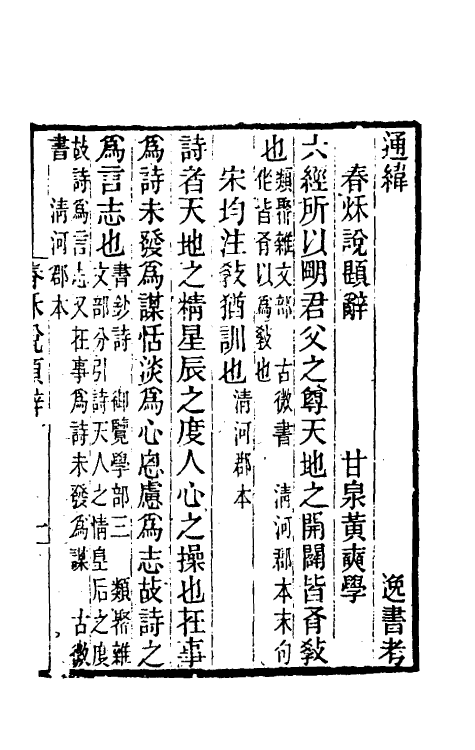 通緯　逸書考
春秌說題辭　甘泉黃奭學
六經所以明君父之尊天地之開闢皆有敎
也類聚雜文部　古微書　清河郡本末句
作皆有以爲敎也
宋均注敎猶訓也清河郡本
詩者天地之精星辰之度人心之操也在事
爲詩未發爲謀恬淡爲心思慮爲志故詩之
爲言志也書鈔詩　御覽學部三　類聚雜
文部分引詩天人之情皇后之度
故詩爲言志又在事爲詩未發爲謀　古微
書　清河郡本
春秌說題辭　一